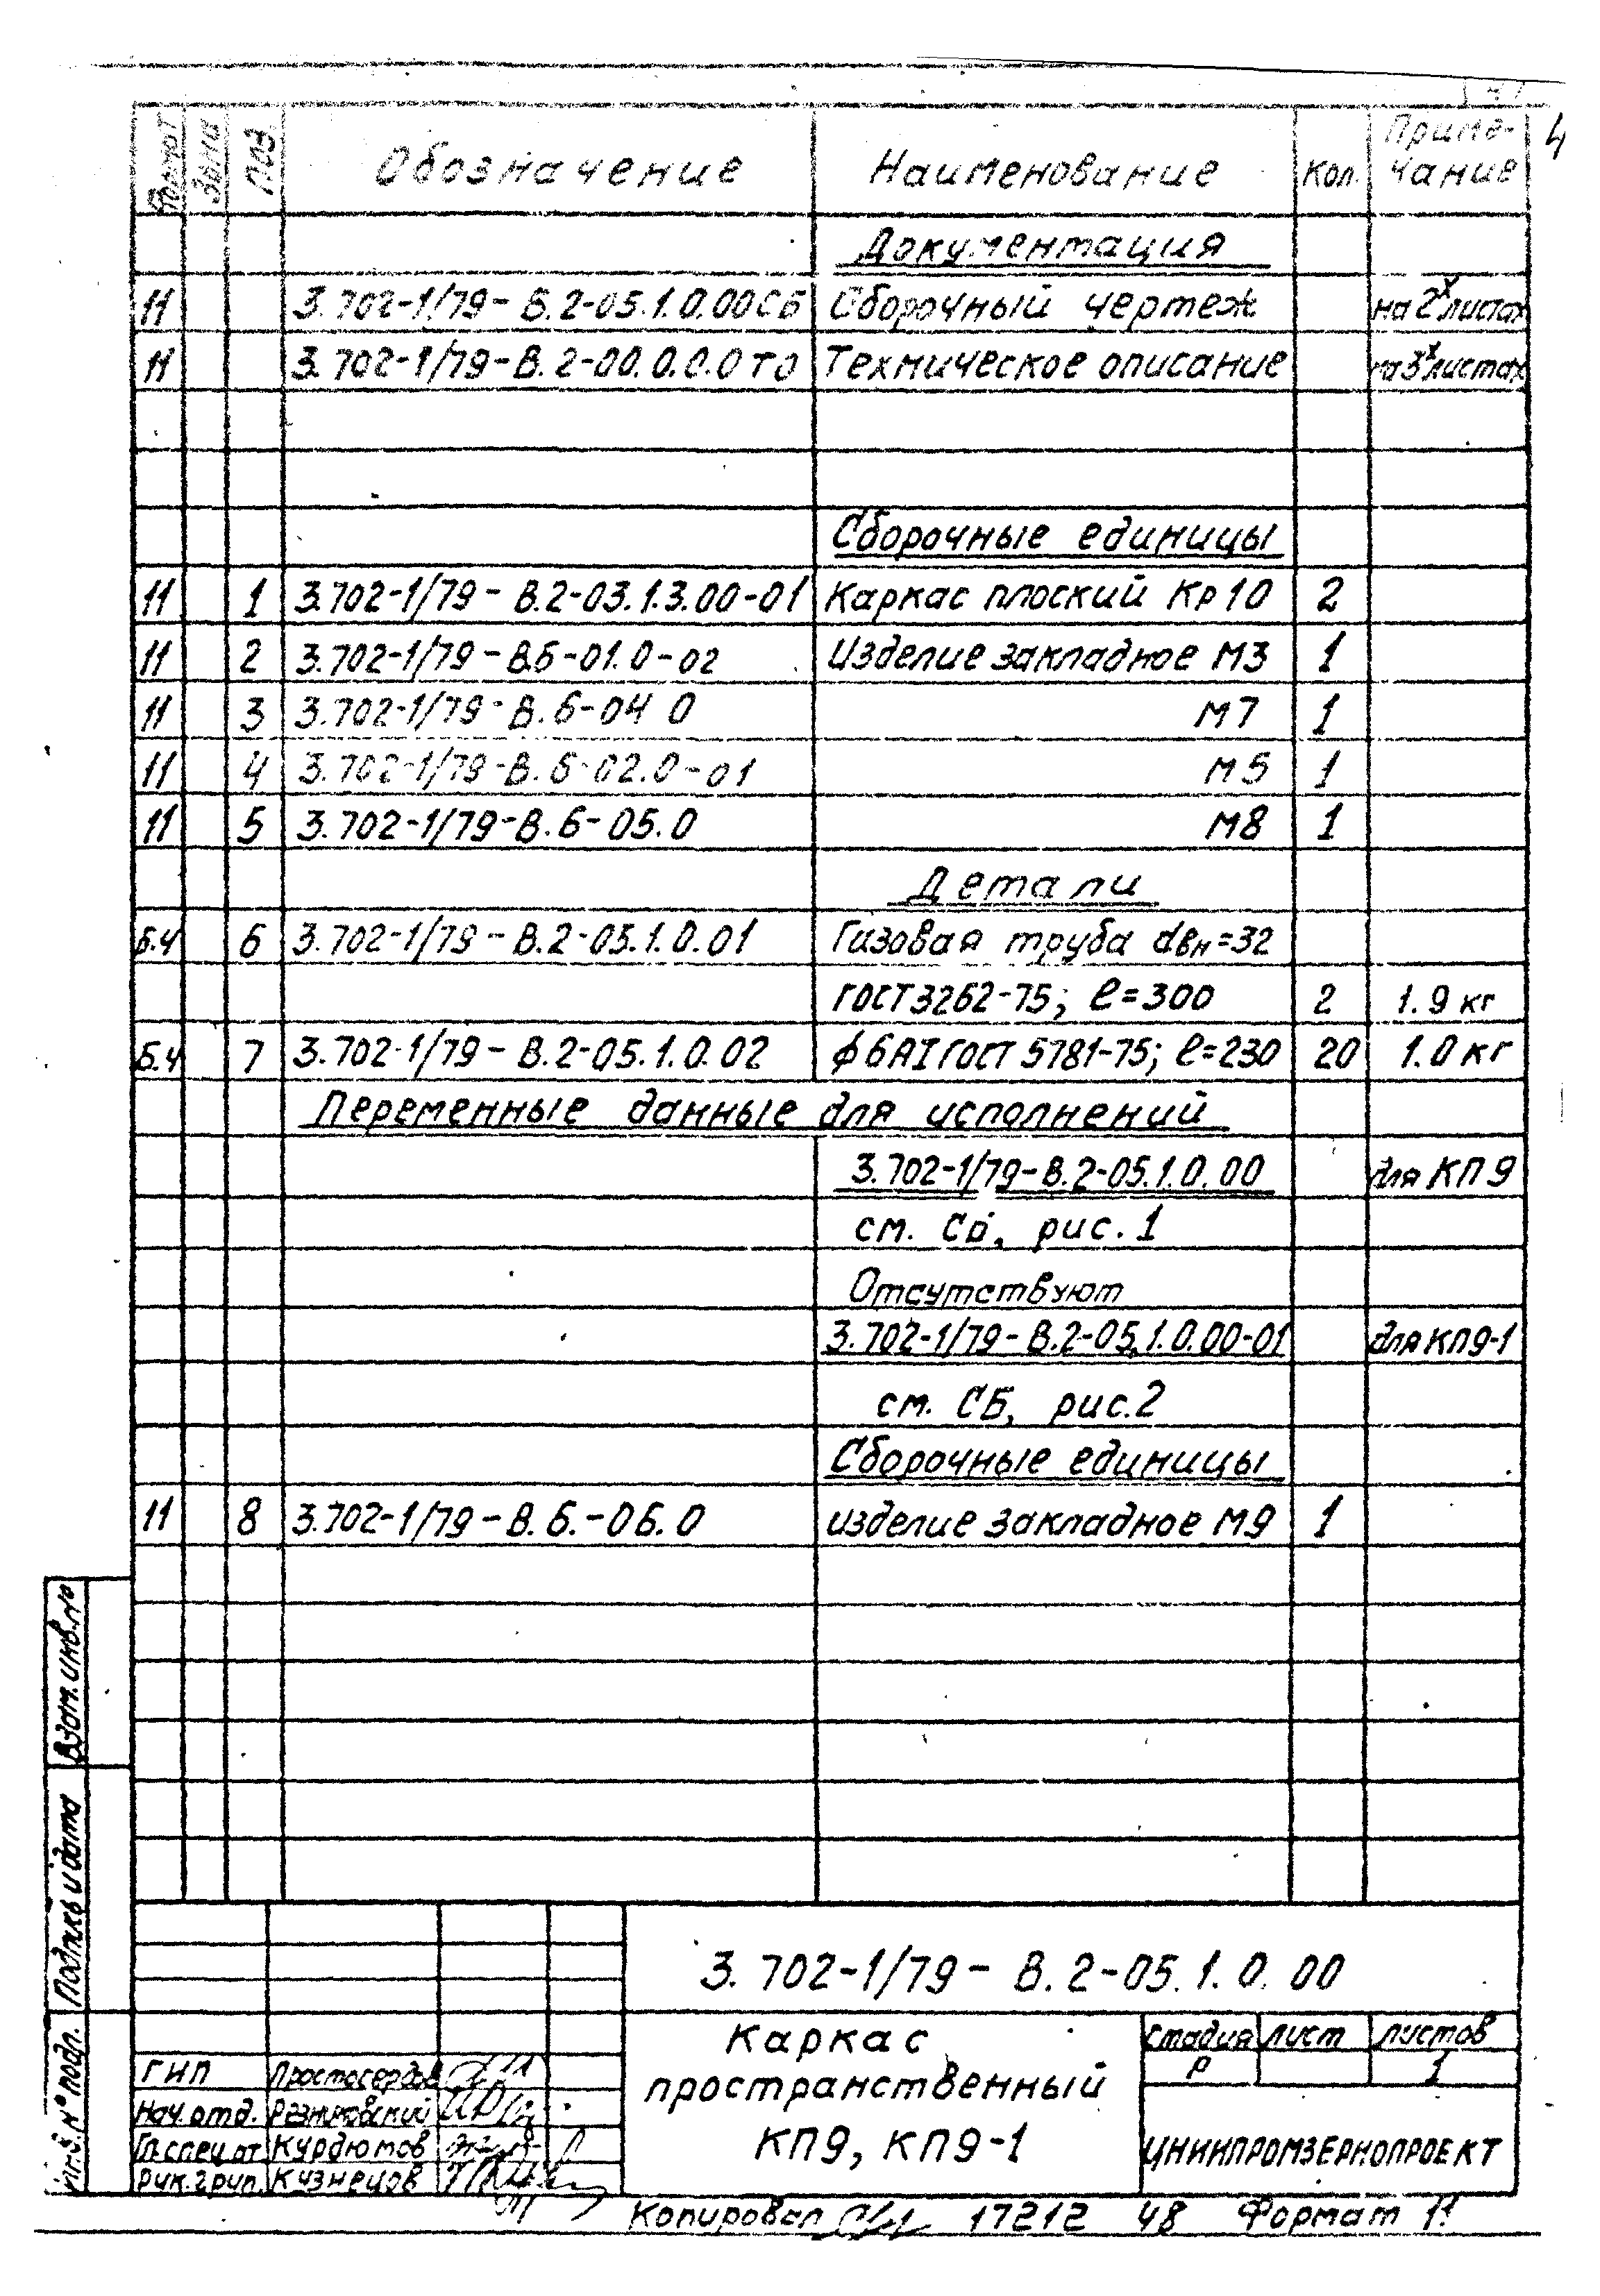 Формат Зона Поз. Обозначение Наименование Кол. Приме-
чание
4
Документация
11 3.702-1/79-В.2-05.1.0.00СБ Сборочный чертеж на 2х листах
11 3.702-1/79-В.2-00.0.0.0ТО Техническое описание на 3х листах
Сборочные единицы
11 1 3.702-1/79-В.2-03.1.3.00-01 Каркас плоский Кр10 2
11 2 3.702-1/79-В.6-01.0-02 Изделие закладное М3 1
11 3 3.702-1/79-В.6-04 0 М7 1
11 4 3.702-1/79-В.6-02.0-01 М5 1
11 5 3.702-1/79-В.6-05.0 М8 1
Детали
Б.Ч 6 3.702-1/79-В.2-05.1.0.01 Газовая труба dвн=32
ГОСТ3262-75; ℓ=300 2 1.9 кг
Б.Ч 7 3.702-1/79-В.2-05.1.0.02 ф6АI ГОСТ 5781-75; ℓ=230 20 1.0 кг
Переменные данные для исполнений
3.702-1/79-В.2-05.1.0.00 для КП9
см. СБ, рис.1
Отсутствуют
3.702-1/79-В.2-05.1.0.00-01 для КП9-1
см. СБ, рис.2
Сборочные единицы
11 8 3.702-1/79-В.6.-06.0 изделие закладное М9 1
Взам. инв.№
Подпись и дата
Инв.№ подл.
3.702-1/79-В.2-05.1.0.00
Каркас
пространственный
КП9, КП9-1
Стадия Лист Листов
Р 1
ЦНИИПРОМЗЕРНОПРОЕКТ
ГИП Простосердов
Нач.отд. Резниковский
Гл.спец.от Курдюмов
Рук.груп. Кузнецов
Копировал 17212 48 Формат 11